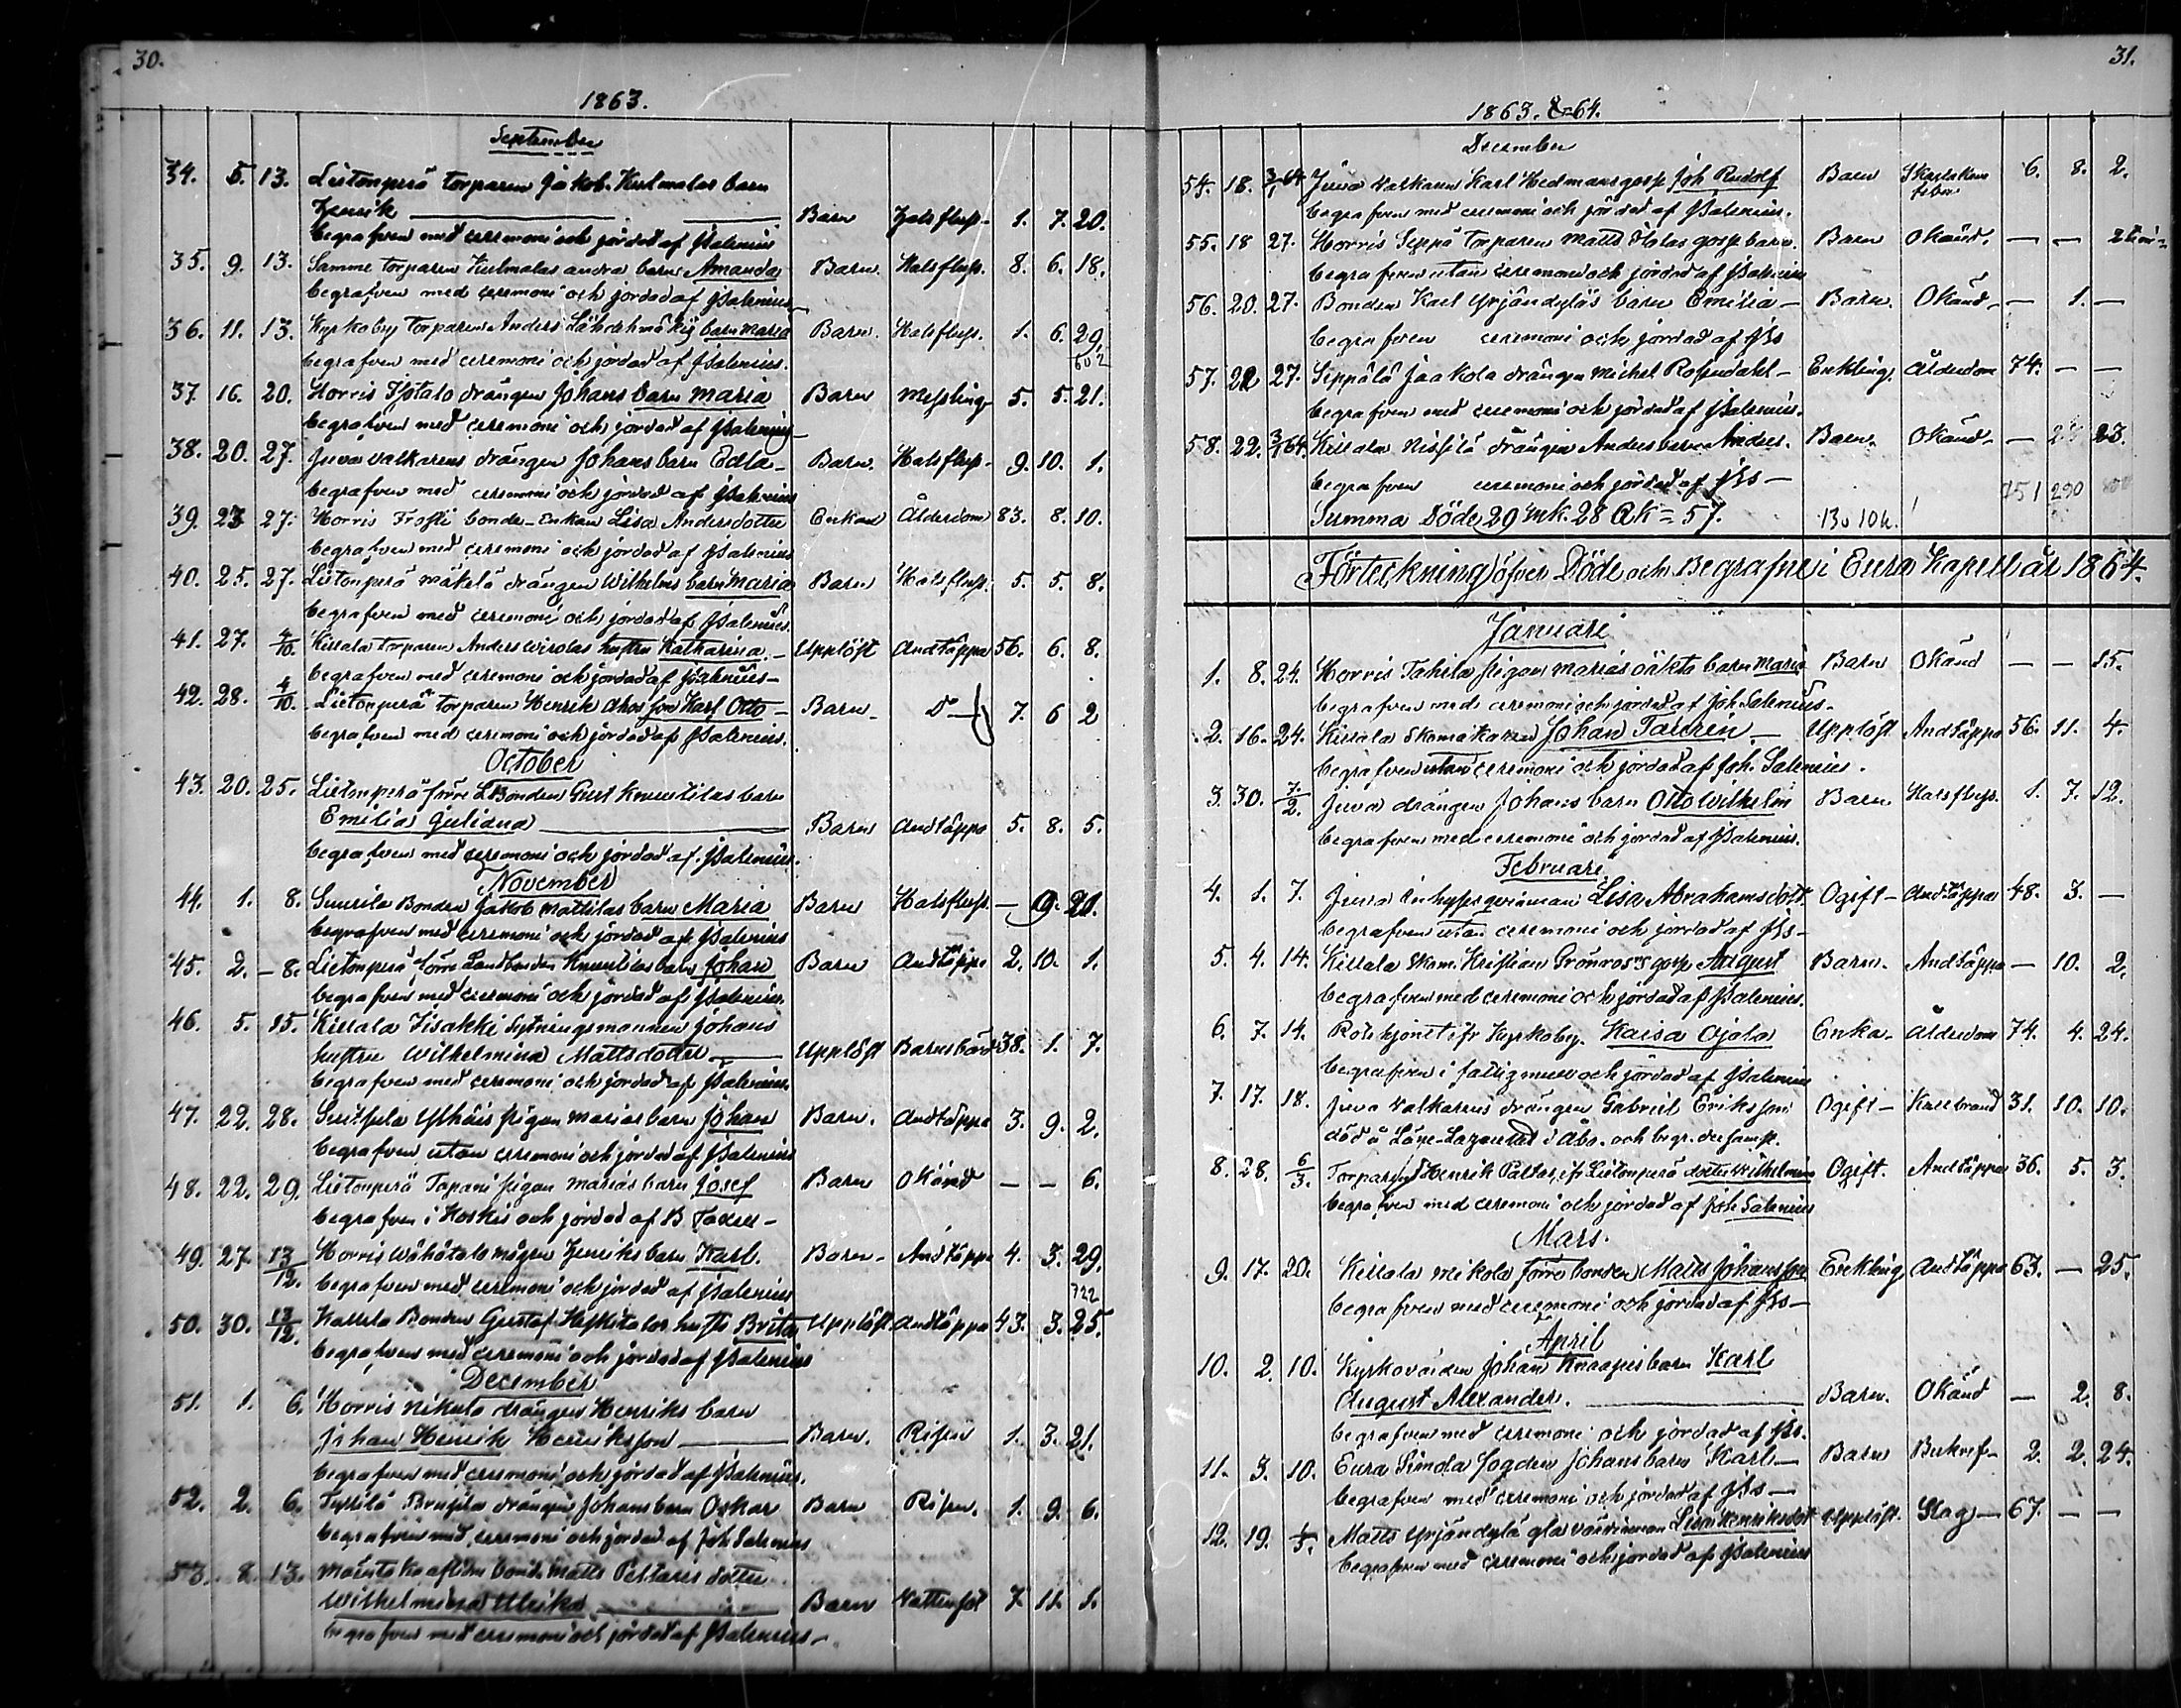 30.
1863.
September
34. 5. 13. Lietonperä torparen Jakob Kulmalas barn
Henrik Barn Halsfluss. 1. 7. 20.
begrafven med ceremoni och jordad af JSalenius
35. 9. 13. Samme torparen Kulmalas andra barn Amanda Barn. Halsfluss. 8. 6. 18.
begrafven med ceremoni och jordad af JSalenius
36. 11. 13. Kyrkoby torparen Anders barn Maria Barn. Halsfluss. 1. 6. 29.
begrafven med ceremoni och jordad af JSalenius.
37. 16. 20. Horris Isotalo drängen Johans barn Maria Barn Messling 5. 5. 21.
begrafven med ceremoni och jordad af JSalenius
38. 20. 27. Juva Valkarens drängen Johans barn Edla Barn. Halsfluss. 9. 10. 1.
begrafven med ceremoni och jordad af JSalenius
39. 23 27. Horris Frosti bonde-Enkan Lisa Andersdotter Enkan Ålderdom 83. 8. 10.
begrafven med ceremoni och jordad af JSalenius
40. 25. 27. Lietonperä Mäkelä drängen Wilhelms barn Maria Barn Halsfluss. 5. 5. 8.
begrafven med ceremoni och jordad af JSalenius.
41. 27. 4/10. Kierala torparen Anders Wirolas hustru Katharina. Upplöst Andtäppa 56. 6. 8.
begrafven med ceremoni och jordad af JSalenius
42. 28. 4/10. Lietonperä torparen Henrik Ahos son Karl Otto Barn D° 7. 6 2
begrafven med ceremoni och jordad af JSalenius.
October
43. 20. 25. Lietonperä förre LBonden Gust Knuutilas barn
Emilia Juliana Barn Andtäppa 5. 8. 5.
begrafven med ceremoni och jordad af JSalenius.
November
44. 1. 8. Suurila Bonden Jakob Mattilas barn Maria Barn Halsfluss. — 9. 21.
begrafven med ceremoni och jordad af JSalenius
45. 2. 8. Lietonperä förre Landbonden Knuutilas barn Johan Barn Andtäppa 2. 10. 1.
begrafven med ceremoni och jordad af JSalenius.
46. 5. 15. Kierala Iisakki Sytningsmannen Johans
hustru Wilhelmina Mattsdotter Upplöst Barnsbörd 38. 1. 7.
begrafven med ceremoni och jordad af JSalenius.
47. 22. 28. pigan Marias barn Johan Barn. Andtäppa 3. 9. 2.
begrafven utan ceremoni och jordad af JSalenius
48. 22. 29. Lietonperä Tapani pigan Marias barn Josef Barn Okänd — — 6.
begrafven i Koskis och jordad af B
49. 27. 13/12. Horris Henriks barn Karl. Barn Andtäppa 4. 3. 29.
begrafven med ceremoni och jordad af JSalenius
50. 30. 13/12. Bonden Gustaf hustru Brita Upplöst Andtäppa 43. 3. 25.
begrafven med ceremoni och jordad af JSalenius
December
51. 1. 6. Horris Nikula drängen Henriks barn
Johan Henrik Henriksson Barn. Risen 1. 3. 21.
begrafven med ceremoni och jordad af JSalenius.
52. 2. 6. drängen Johans barn Oskar Barn Risen. 1. 9. 6.
begrafven med ceremoni och jordad af Joh Salenius
53. 8. 13. bond. Matts dotter
Wilhelmina Ulrika Barn Vattusot 7. 11. 1.
begrafven med ceremoni och jordad af JSalenius
31.
1863. & 64.
December
54. 18. 3/1 64 Juva Valkaren Karl Hedmans gosse Joh Rudolf Barn Skarlakans feber 6. 8. 2.
begrafven med ceremoni och jordad af JSalenius.
55. 18 27. Horris Seppä torparen Matts gosse barn. Barn Okänd. — —
begrafven utan ceremoni och jordad af JSalenius
56. 20. 27. Bonden Karl Yrjändyläs barn Emilia Barn. Okänd — 1. —
begrafven ceremoni och jordad af JSs
57. 22 27. Seppälä Jaakola drängen Michel Rosendahl Enkling. Ålderdom 74. — —
begrafven med ceremoni och jordad af JSalenius.
58. 22. 3/1 64. Kierala Nissilä drängen Anders barn Anders. Barn. Okänd — 23.
begrafven ceremoni och jordad af JSs
Summa Döde 29 Mk. 28 Qk = 57.
Förteckning öfver Döde och Begrafne i Eura Kapell år 1864.
Januari
1. 8. 24. Horris Tahila pigan Marias oäkta barn Maria Barn Okänd — — 15.
begrafven med ceremoni och jordad af Joh Salenius
2. 16. 24. Kierala Skomakaren Johan Taurén Upplöst Andtäppa 56. 11. 4.
begrafven utan ceremoni och jordad af Joh. Salenius.
3. 30. 7/2. Juva drängen Johans barn Otto Wilhelm Barn Halsfluss. 1. 7. 12.
begrafven med ceremoni och jordad af JSalenius.
Februari
4. 1. 7. Juva Inhyses qvinnan Lisa Abrahamsdott. Ogift Andtäppa 48. 3. —
begrafven utan ceremoni och jordad af JSs
5. 4. 14. Kierala Skom. Kristian Grönroos gosse August Barn. Andtäppa — 10. 2.
begrafven med ceremoni och jordad af JSalenius.
6. 7. 14. Rotehjonet fr Kyrkoby. Kaisa Ojala Enka Ålderdom 74. 4. 24.
begrafven i och jordad af JSalenius
7. 17. 18. Juva Valkarens drängen Gabriel Eriksson Ogift Kallbrand 31. 10. 10.
död å Läne-Lazarettet i Åbo. och begr. dersamst.
8. 28. 6/3. Torparen Henrik fr Lietonperä dotter Wilhelmina Ogift. Andtäppa 36. 5. 3.
begrafven med ceremoni och jordad af Joh Salenius
Mars.
9. 17. 20. Kierala Mikola förre bonden Matts Johansson Enkling Andtäppa 63. — 25.
begrafven med ceremoni och jordad af JSs
April
10. 2. 10. Kyrkovärden Johan Knaapis barn Karl
August Alexander. Barn. Okänd — 2. 8.
begrafven med ceremoni och jordad af JSs.
11. 3. 10. Eura Simola Fogden Johans barn Karl Barn 2. 2. 24.
begrafven med ceremoni och jordad af JSs
12. 19. Matts Yrjändylä Lisa Henriksdot Upplöst. Slag 67. — —
begrafven med ceremoni och jordad af JSalenius